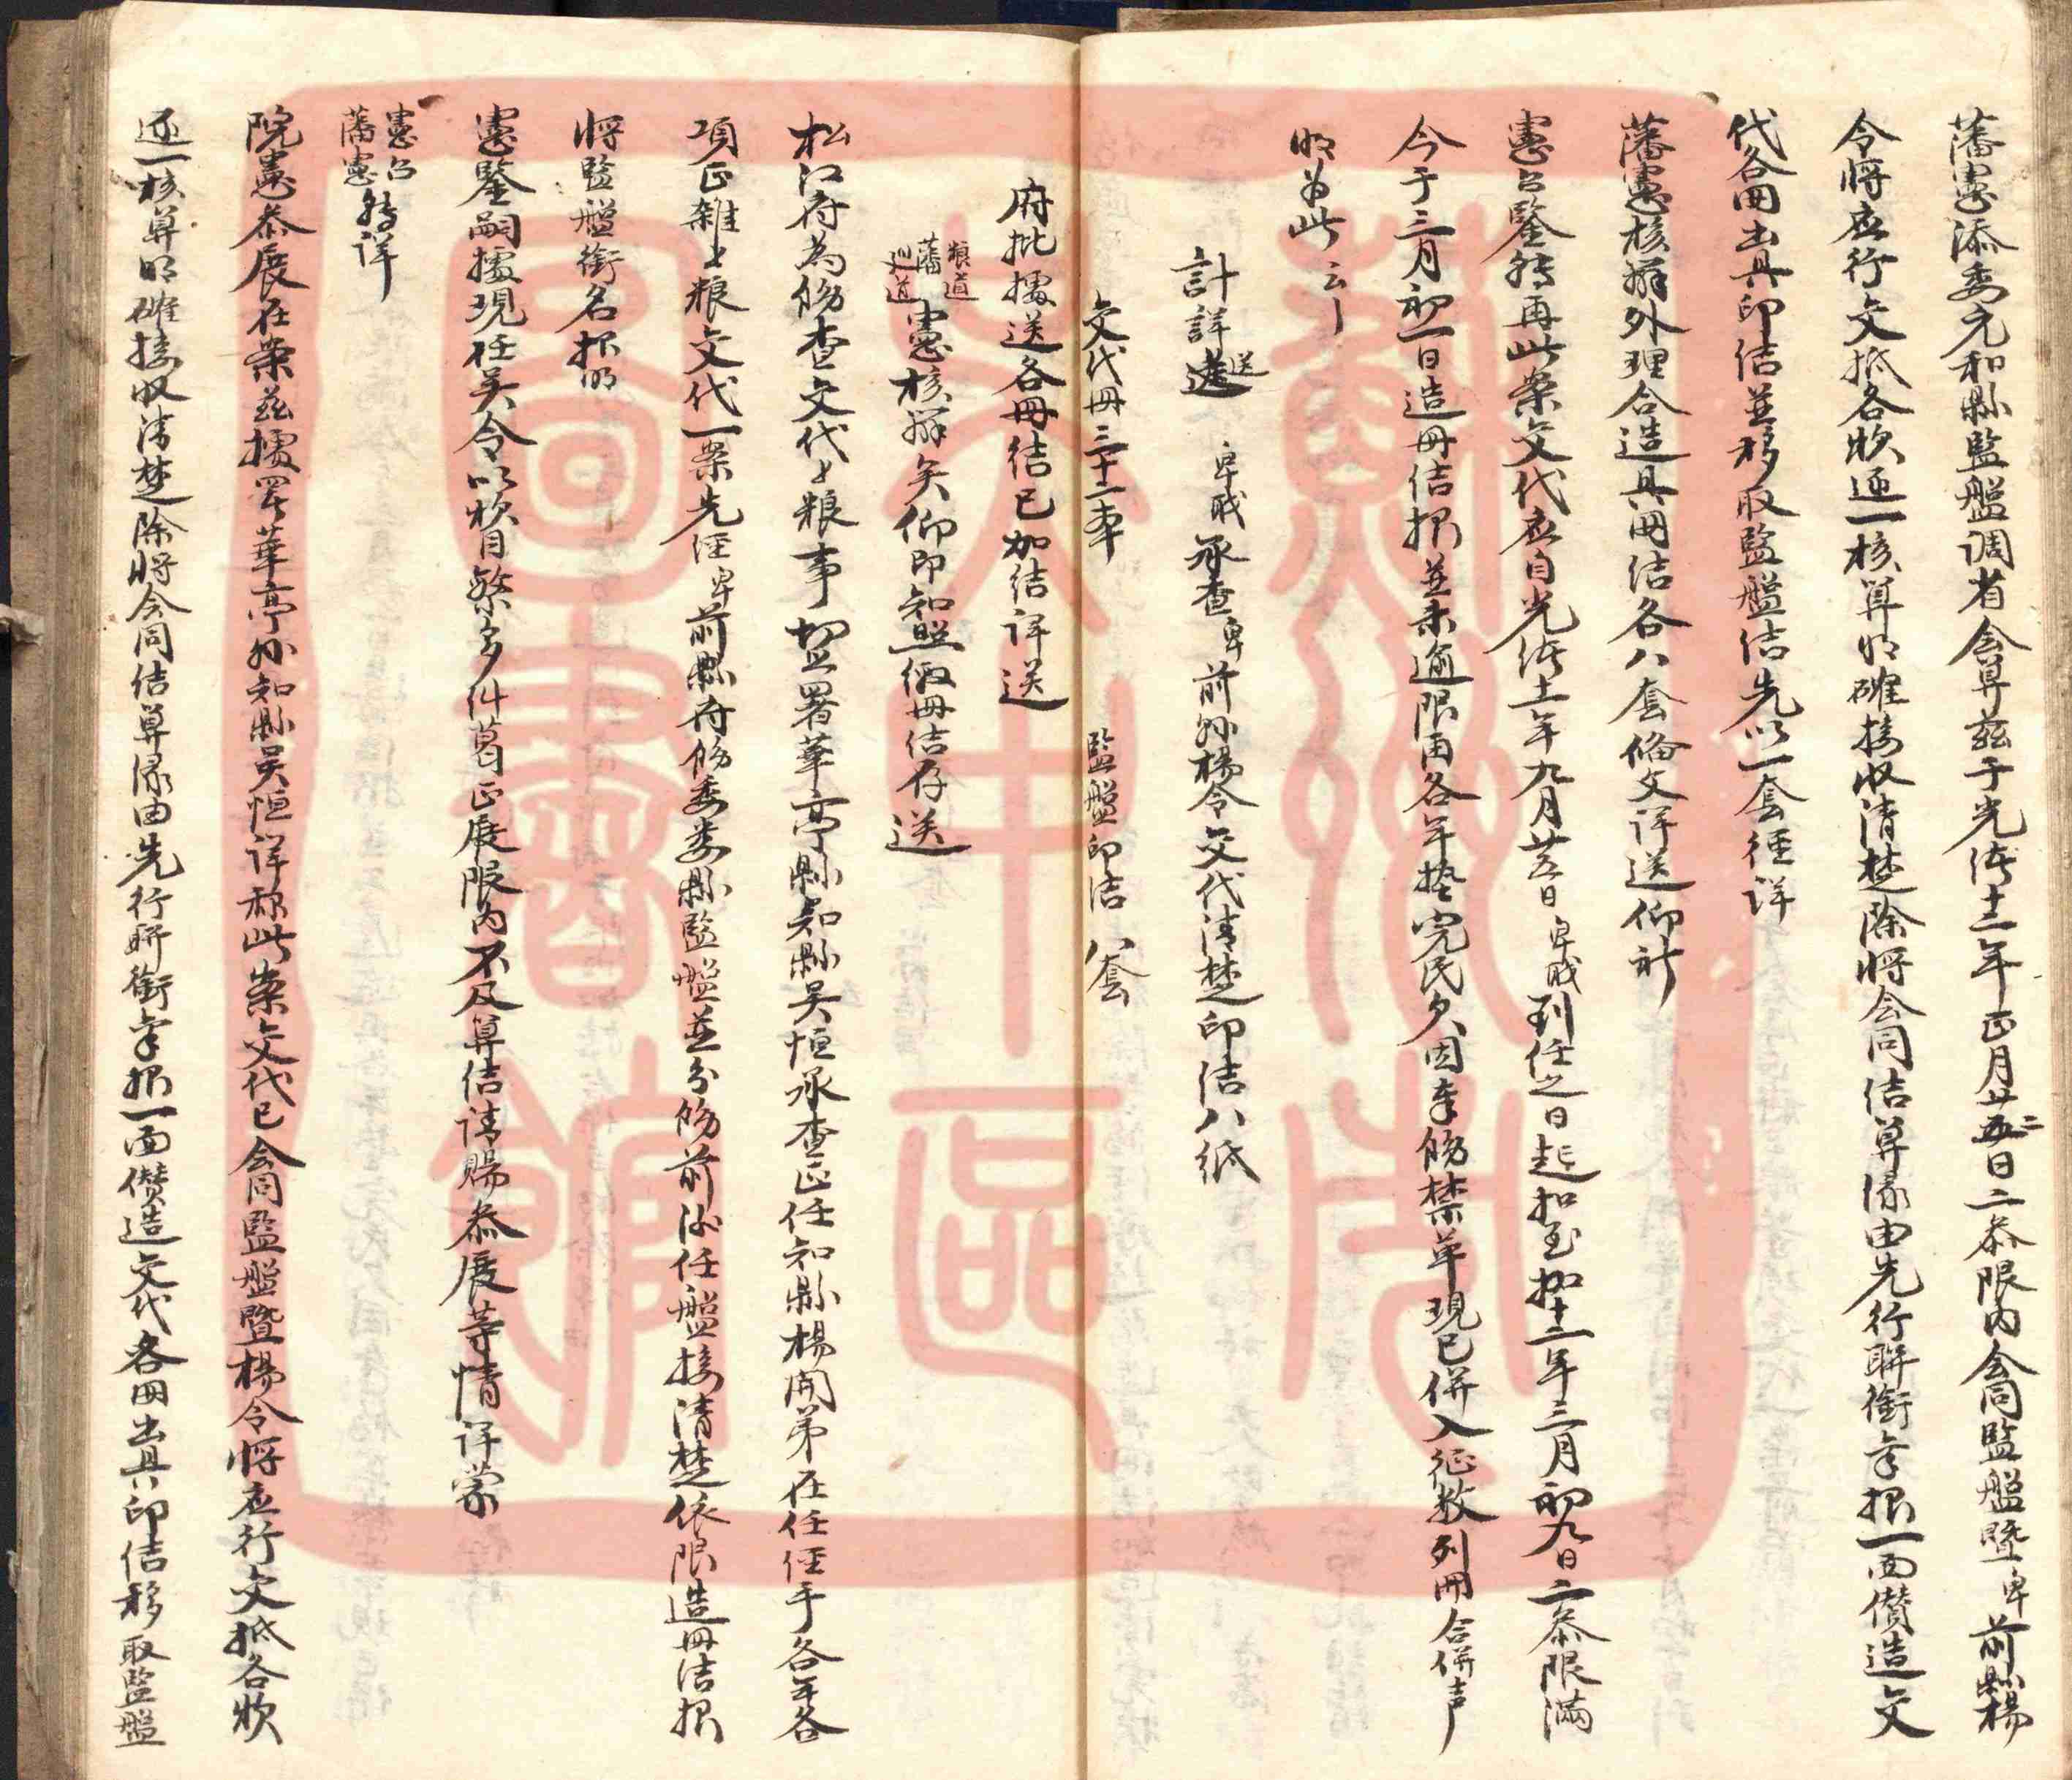 藩憲添委元和縣監盤調省會算茲于光緒十二年正月廿二日二叅限內會同監盤暨卑前縣楊
令將應行交抵各欵逐一核算明確接收清楚除將會同結算緣由先行聯銜具報一面儹造交
代各冊出具印結並移取監盤結先以一套徑詳
藩憲核辦外理合造具冊結各八套備文詳送仰祈
憲台鑒轉再此案交代應自光緒十一年九月廿五日卑職到任之日起扣至十二年三月初九日二叅限滿
今于三月初一日造冊結報並未逾限再各年墊完民欠因奉飭禁革現已併入征數列冊合併聲
明為此云云
計詳送
卑職承查卑前縣楊令交代清楚印結八紙
交代冊三十二本
監盤印結八套
府批據送各冊結已加結詳送
糧道
藩
巡道
憲核辦矣仰即知照繳冊結存送
松江府為飭查交代交糧事切照署華亭縣知縣吳恒承查正任知縣楊開第在任任經手各年各
項正雜錢糧交代一案先經卑前縣府飭委婁縣監盤並分飭前後任盤接清楚依限造冊結報
將監盤銜名報明
憲鑒嗣據現任吳令以欵目繁多件葛正展限內不及算結請賜叅展等情詳蒙
憲台
藩憲
轉詳
院憲叅展在案茲據署華亭縣知縣吳恒詳稱此案交代已會同監盤暨楊令將應行交抵各欵
逐一核算明確接收清楚除將會同結算緣由先行聯銜具報一面儹造交代各冊出具印結移取監盤
蘇州市人中區圖書館